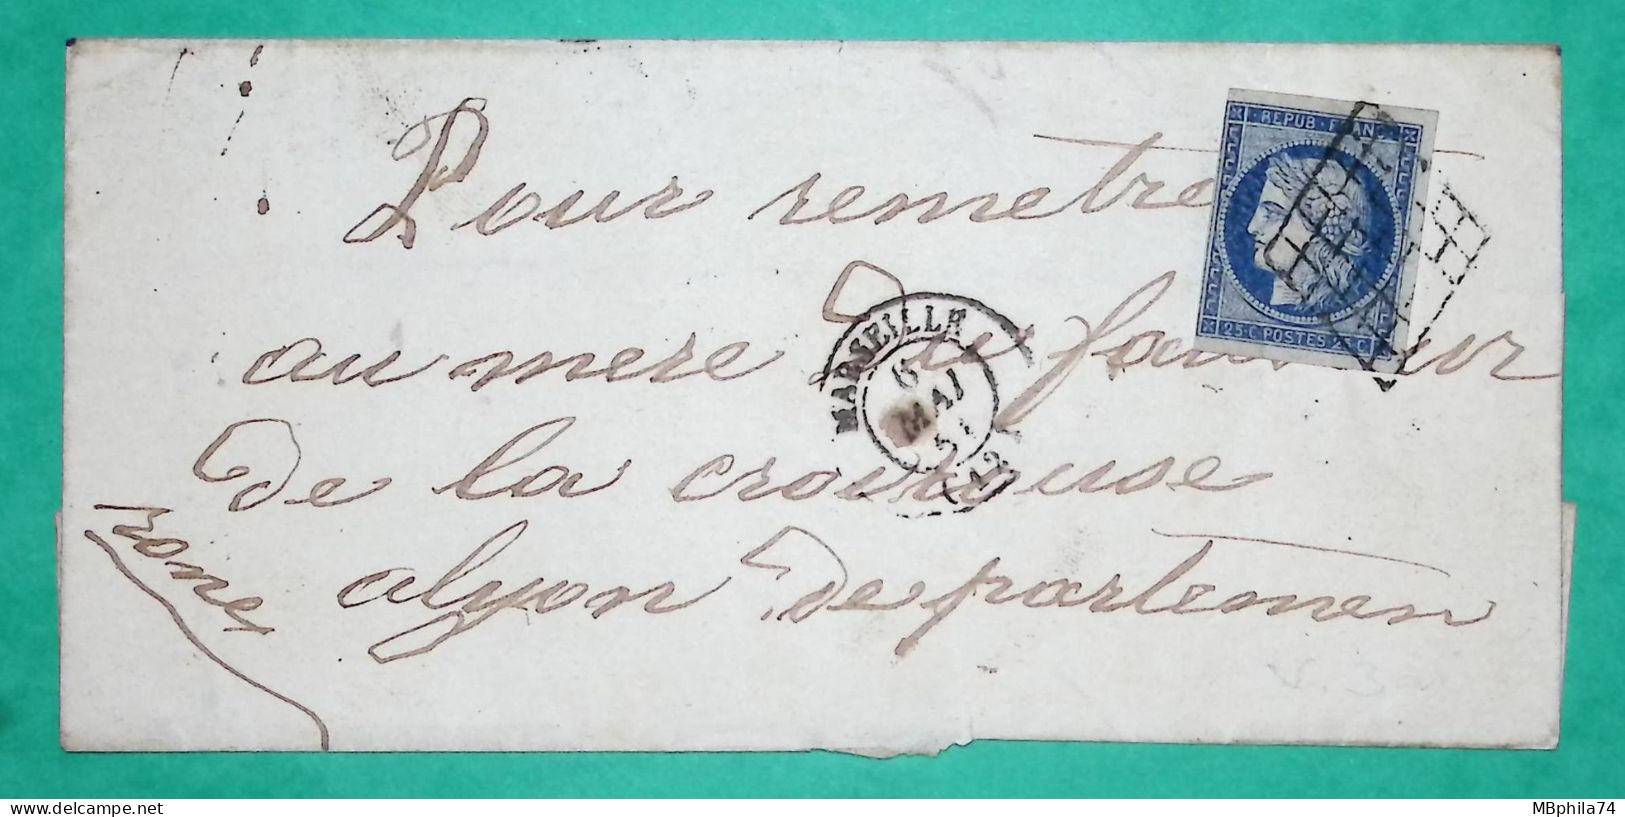 Pour remetre
au mere du fau
de la crousouse
alyon departemen
rone
REPUB FRANC
25 C POSTES 25 C
MARSEILLE
6
MAI
51
(12)
MBphila74